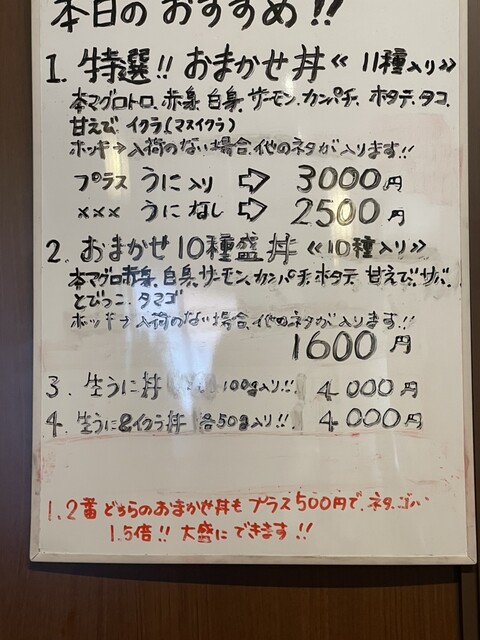 本日のおすすめ!!
1. 特選!! おまかせ丼 《11種入り》
本マグロトロ、赤身、白身、サーモン、カンパチ、ホタテ、タコ、
甘えび、イクラ(マスイクラ)
ホッキ→入荷のない場合、他のネタが入ります!!
プラス うに入り ⇨ 3000円
××× うになし ⇨ 2500円
2. おまかせ10種盛丼 《10種入り》
本マグロ赤身、白身、サーモン、カンパチ、ホタテ、甘えび、サバ、
とびっこ、タマゴ
ホッキ→入荷のない場合、他のネタが入ります!!
1600円
3. 生うに丼 100g入り!!. 4000円
4. 生うに&イクラ丼 各50g入り!!. 4000円
1.2番 どちらのおまかせ丼も プラス500円で、ネタ、ゴハン
1.5倍!! 大盛にできます!!